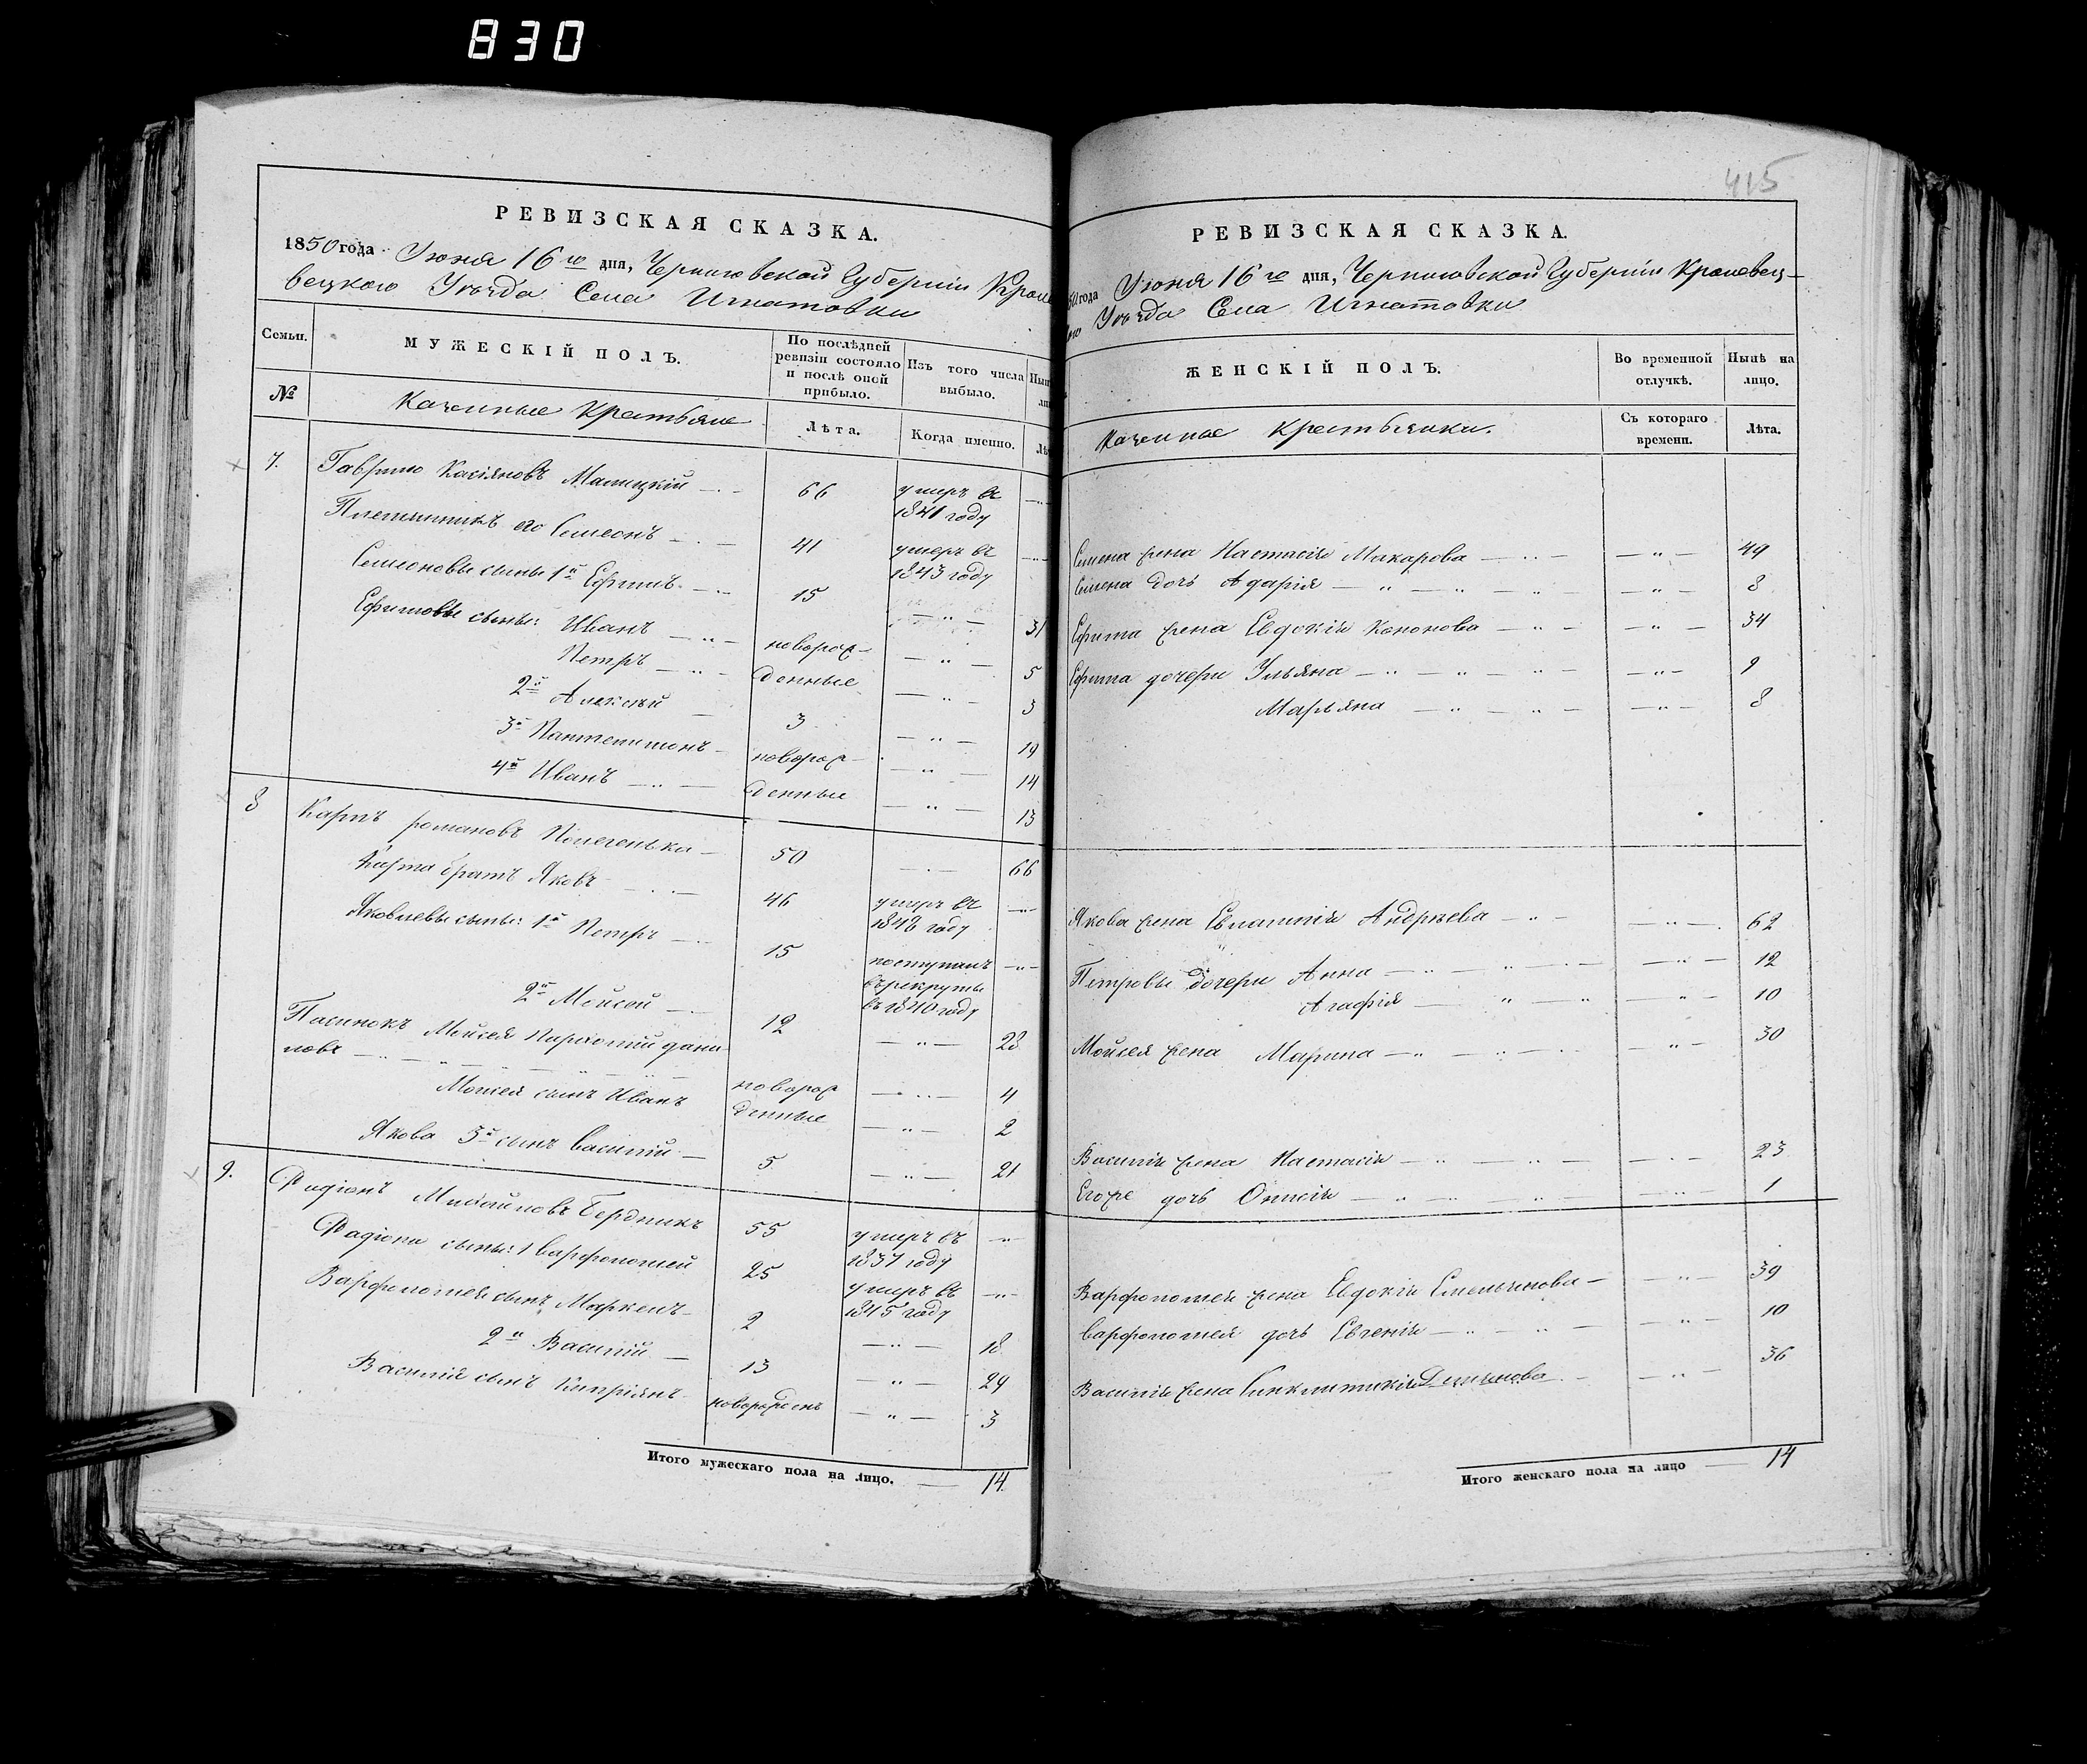 830
415
РЕВИЗСКАЯ СКАЗКА.
1850 года Июня 16го дня, Черниговской Губерніи Кроле
вецкого Уезда Села Игнатовки
Семьи.
МУЖЕСКІЙ ПОЛЪ.
По послѣдней ревизіи состояло и послѣ оной прибыло.
Изъ того числа выбыло.
№
Казенные Крестьяне
Лѣта.
Когда именно.
7. Гаврило Касіяновъ 66 умеръ въ 1841 году
Племянникъ его Семеонъ 41 умеръ въ 1843 году
Семеоновы сыны 1й Ефимъ 15 31
Ефимовы сыны: Иванъ новорож- 5
Петръ денные 3
2й Алексѣй 3 19
3й Пантелимонъ новорож- 14
4й Иванъ денные 13
8 Карпъ Романовъ 50 66
Карпа братъ Яковъ 46 умеръ въ 1848 году
Яковлевы сыны: 1й Петръ 15 поступилъ въ рекруты въ 1840 году
2й Мойсей 12 28
Пасинокъ Мойсея Пархомій Дани-
ловъ новорож 4
Мойсея сынъ Иванъ денные 2
Якова 3й сынъ Василій 5 21
9. Фадіонъ Михайловъ Бердникъ 55 умеръ въ 1837 году
Фадіона сыны: 1 Варфоломей 25 умеръ въ 1845 году
Варфоломея сынъ Маркелъ 2 18
2й Василій 13 29
Василія сынъ Кипріянъ новорожденъ 3
Итого мужескаго пола на лицо. 14.
РЕВИЗСКАЯ СКАЗКА.
50 года Июня 16го дня, Черниговской Губерніи Кролевец-
кого Уезда Села Игнатовки
ЖЕНСКІЙ ПОЛЪ.
Во временной отлучкѣ.
Нынѣ на лицо.
Казенные Крестьянки.
Съ котораго времени.
Лѣта.
Семена жена Настасія Макарова 49
Семена дочь Адарія 8
Ефима жена Евдокія Кононова 34
Ефима дочери Ульяна 9
Марьяна 8
Якова жена Евлампія Андреева 62
Петровы дочери Анна 12
Агафія 10
Мойсея жена Марина 30
Василія жена Настасія 23
Егоже дочь Описія 1
Варфоломея жена Евдокія Емельянова 39
Варфоломея дочь Евгенія 10
Василія жена Синклитикія 36
Итого женскаго пола на лицо 14